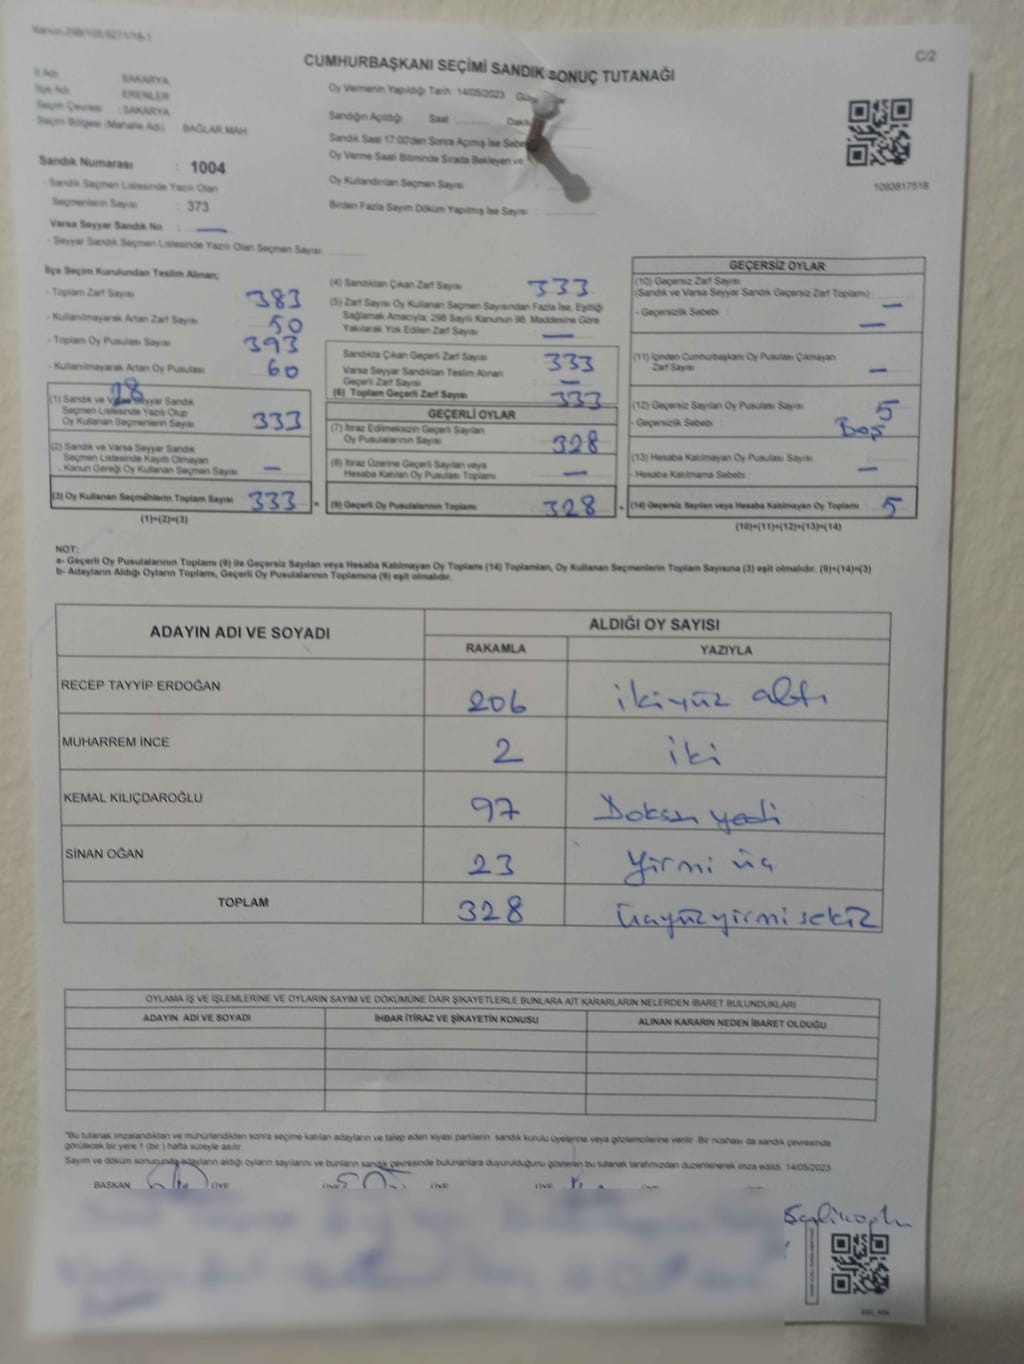 CUMHURBAŞKANI SEÇİMİ SANDIK SONUÇ TUTANAĞI
C/2
İl Adı : SAKARYA
İlçe Adı : ERENLER
Seçim Çevresi : SAKARYA
Seçim Bölgesi (Mahalle Adı) : BAĞLAR MAH
Sandık Numarası : 1004
- Sandık Seçmen Listesinde Yazılı Olan
Seçmenlerin Sayısı : 373
Varsa Seyyar Sandık No : —
- Seyyar Sandık Seçmen Listesinde Yazılı Olan Seçmen Sayısı:
Oy Vermenin Yapıldığı Tarih :14/05/2023
Sandığın Açıldığı Saat
Sandık Saat 17:00'den Sonra Açılmış İse
Oy Verme Saati Bitiminde Sırada Bekleyen ve
Oy Kullandırılan Seçmen Sayısı
Birden Fazla Sayım Döküm Yapılmış İse Sayısı :
1093817518
İlçe Seçim Kurulundan Teslim Alınan;
- Toplam Zarf Sayısı 383
- Kullanılmayarak Artan Zarf Sayısı 50
- Toplam Oy Pusulası Sayısı 393
- Kullanılmayarak Artan Oy Pusulası 60
28
(1) Sandık ve Varsa Seyyar Sandık
Seçmen Listesinde Yazılı Olup
Oy Kullanan Seçmenlerin Sayısı 333
(2) Sandık ve Varsa Seyyar Sandık
Seçmen Listesinde Kayıtlı Olmayan
- Kanun Gereği Oy Kullanan Seçmen Sayısı —
(3) Oy Kullanan Seçmenlerin Toplam Sayısı 333 =
(1)+(2)=(3)
(4) Sandıktan Çıkan Zarf Sayısı 333
(5) Zarf Sayısı Oy Kullanan Seçmen Sayısından Fazla İse, Eşitliği
Sağlamak Amacıyla; 298 Sayılı Kanunun 98. Maddesine Göre
Yakılarak Yok Edilen Zarf Sayısı —
Sandıkta Çıkan Geçerli Zarf Sayısı 333
Varsa Seyyar Sandıktan Teslim Alınan
Geçerli Zarf Sayısı —
(6) Toplam Geçerli Zarf Sayısı 333
GEÇERLİ OYLAR
(7) İtiraz Edilmeksizin Geçerli Sayılan
Oy Pusulalarının Sayısı 328
(8) İtiraz Üzerine Geçerli Sayılan veya
Hesaba Katılan Oy Pusulası Toplamı —
(9) Geçerli Oy Pusulalarının Toplamı 328 +
GEÇERSİZ OYLAR
(10) Geçersiz Zarf Sayısı
(Sandık ve Varsa Seyyar Sandık Geçersiz Zarf Toplamı) —
- Geçersizlik Sebebi : —
(11) İçinden Cumhurbaşkanı Oy Pusulası Çıkmayan
Zarf Sayısı —
(12) Geçersiz Sayılan Oy Pusulası Sayısı 5
- Geçersizlik Sebebi Boş
(13) Hesaba Katılmayan Oy Pusulası Sayısı
- Hesaba Katılmama Sebebi : —
(14) Geçersiz Sayılan veya Hesaba Katılmayan Oy Toplamı 5
(10)+(11)+(12)+(13)=(14)
NOT:
a- Geçerli Oy Pusulalarının Toplamı (9) ile Geçersiz Sayılan veya Hesaba Katılmayan Oy Toplamı (14) Toplamları, Oy Kullanan Seçmenlerin Toplam Sayısına (3) eşit olmalıdır. (9)+(14)=(3)
b- Adayların Aldığı Oyların Toplamı, Geçerli Oy Pusulalarının Toplamına (9) eşit olmalıdır.
ADAYIN ADI VE SOYADI
ALDIĞI OY SAYISI
RAKAMLA YAZIYLA
RECEP TAYYİP ERDOĞAN 206 ikiyüz altı
MUHARREM İNCE 2 iki
KEMAL KILIÇDAROĞLU 97 Doksan yedi
SİNAN OĞAN 23 Yirmi üç
TOPLAM 328 üçyüzyirmisekiz
OYLAMA İŞ VE İŞLEMLERİNE VE OYLARIN SAYIM VE DÖKÜMÜNE DAİR ŞİKAYETLERLE BUNLARA AİT KARARLARIN NELERDEN İBARET BULUNDUKLARI
ADAYIN ADI VE SOYADI İHBAR İTİRAZ VE ŞİKAYETİN KONUSU ALINAN KARARIN NEDEN İBARET OLDUĞU
"Bu tutanak imzalandıktan ve mühürlendikten sonra seçime katılan adayların ve talep eden siyasi partilerin sandık kurulu üyelerine veya gözlemcilerine verilir. Bir nüshası da sandık çevresinde
görülecek bir yere 1 (bir ) hafta süreyle asılır.
Sayım ve döküm sonucunda adayların aldığı oyların sayılarını ve bunların sandık çevresinde bulunanlara duyurulduğunu gösteren bu tutanak tarafımızdan düzenlenerek imza edildi. 14/05/2023
BAŞKAN ÜYE ÜYE ÜYE ÜYE ÜYE ÜYE